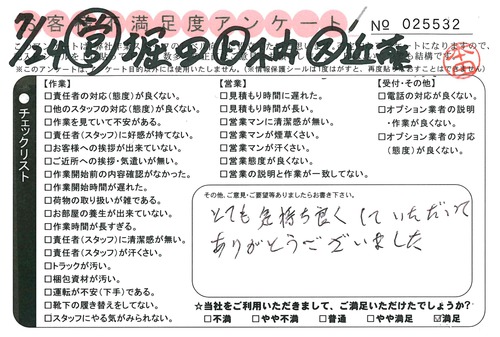 お客様不満足度アンケート
No 025532
7/24 営 堀 近藤
※このアンケートは、アンケート目的以外には使用いたしません。
チェックリスト
【作業】
□責任者の対応(態度)が良くない。
□他のスタッフの対応(態度)が良くない。
□作業を見ていて不安がある。
□責任者(スタッフ)に好感が持てない。
□お客様への挨拶が出来ていない。
□ご近所への挨拶・気遣いが無い。
□作業開始前の内容確認がなかった。
□作業開始時間が遅れた。
□荷物の取り扱いが雑である。
□お部屋の養生が出来ていない。
□作業時間が長すぎる。
□責任者(スタッフ)に清潔感が無い。
□責任者(スタッフ)が汗くさい。
□トラックが汚い。
□梱包資材が汚い。
□運転が不安(下手)である。
□靴下の履き替えをしてない。
□スタッフにやる気がみられない。
【営業】
□見積もり時間に遅れた。
□見積もり時間が長い。
□営業マンに清潔感が無い。
□営業マンが煙草くさい。
□営業マンが汗くさい。
□営業態度が良くない。
□営業の説明と作業が一致してない。
【受付・その他】
□電話の対応が良くない。
□オプション業者の説明
・作業が良くない。
□オプション業者の対応
(態度)が良くない。
その他、ご意見・ご要望等ありましたらお書き下さい。
とても気持ち良くしていただいて
ありがとうございました
☆当社をご利用いただきまして、ご満足いただけたでしょうか?
□不満 □やや不満 □普通 □やや満足 ☑満足